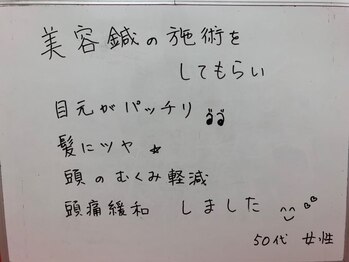 美容鍼の施術を
してもらい
目元がパッチリ
髪にツヤ☆
頭のむくみ軽減
頭痛緩和 しました
50代 女性